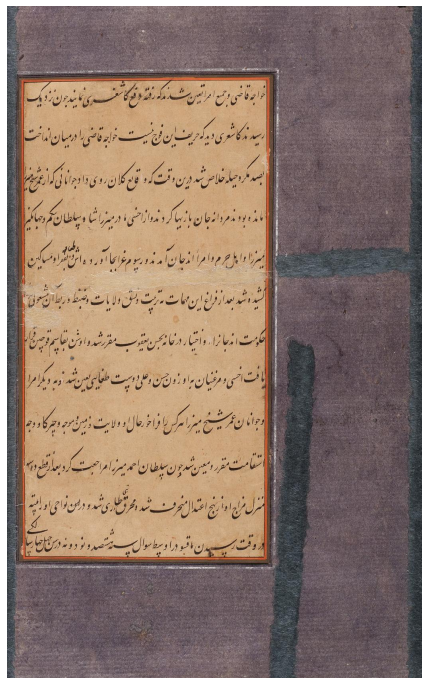 خواجه قاضی و جمع امرا تعین شدند که رفته دفع کاشغری نمایند چون نزدیک
رسیدند کاشغری دید که حریف این فوج نیست خواجه قاضی را در میان انداخت
بصد مکر و حیله خلاص شد درین وقت که وقایع کلان روی داد جوانانی که از عمر شیخ میرزا
مانده بودند مردانه جان بازیها کردند والده میرزا شاه سلطان بیگم و جهانگیر
میرزا و اهل حرم و امرا اندجان آمدند و رسوم عزا بجا آورده آش و طعام بفقرا و مساکین
کشیده شد بعد از فراغ این مهمات به ترتیب و نسق ولایات و ضبط و ربط آن شغولی
حکومت اندجان و اختیار در خانه بحسن یعقوب مقرر شد و اوش بقاسم قوچین قرار
یافت اخسی و مرغینان به اوزون حسن و علی دوست طغایی تعین شدند و دیگر امرا
و جوانان عمر شیخ میرزا هرکس را فراخور حال او ولایت و زمین و موجه و چرگا و وجه
استقامت مقرر و معین شد چون سلطان احمد میرزا مراجعت کرد بعد از قطع دو سه
منزل مزاج او از نهج اعتدال منحرف شد و محرق تبی طاری شد و در این نواحی اوراتیپه
در وقت رسیدن باقسو در اواسط شوال سنه هشتصد و نود و نه در سن چهل و چهار سالگی